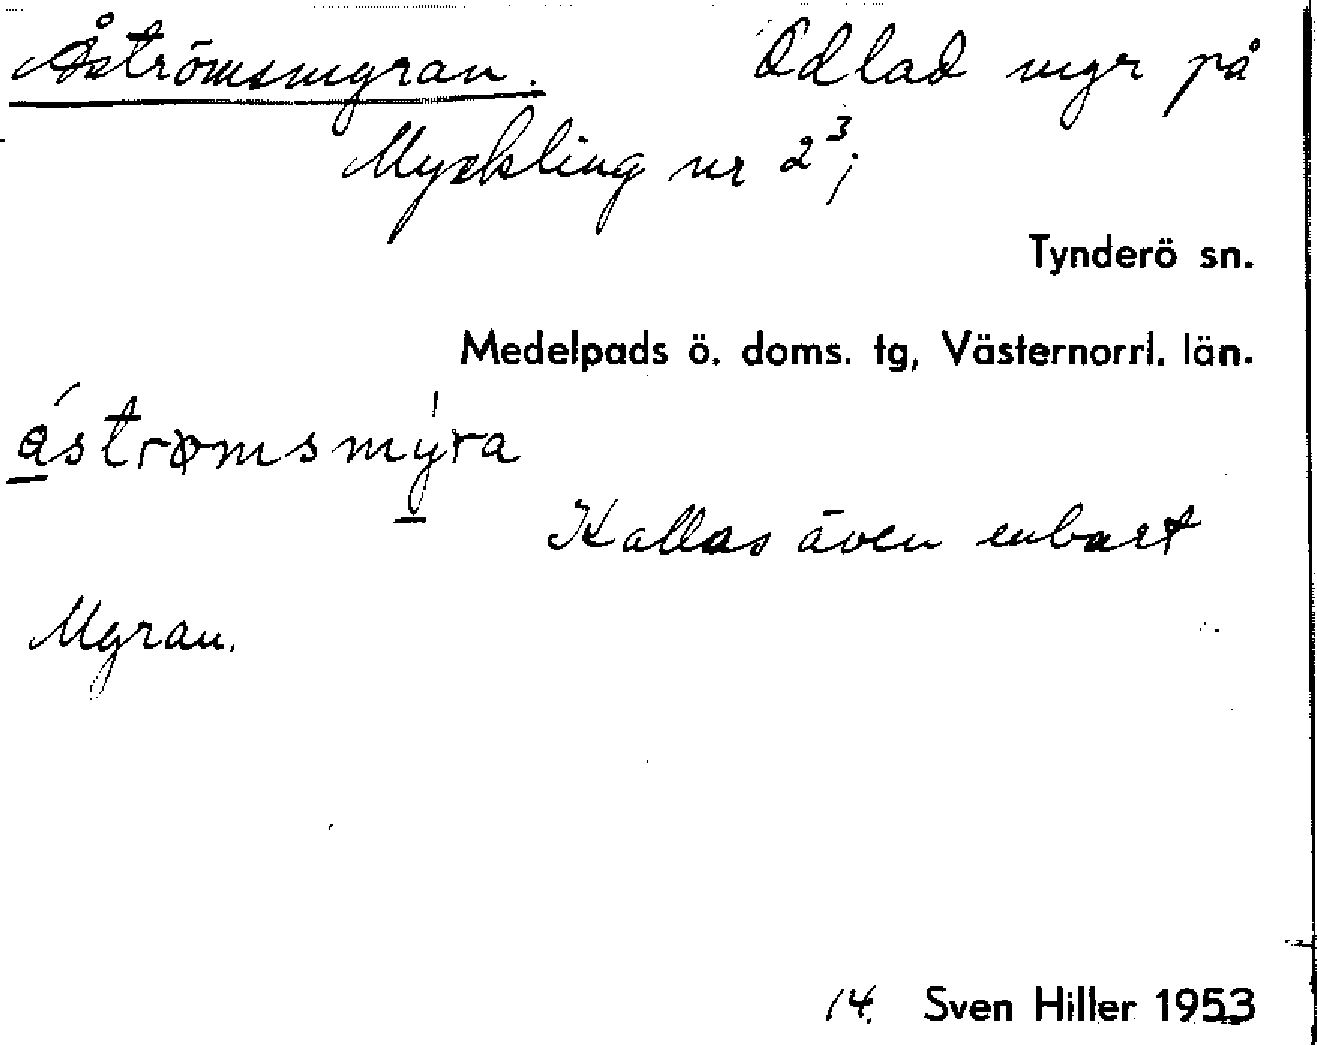 Åströmsmyran. Odlad myr på
Myckling nr 2³;
Tynderö sn.
Medelpads ö. doms. tg, Västernorrl. län.
åstrømsmy̍ra
Kallas även enbart
Myran.
14. Sven Hiller 1953